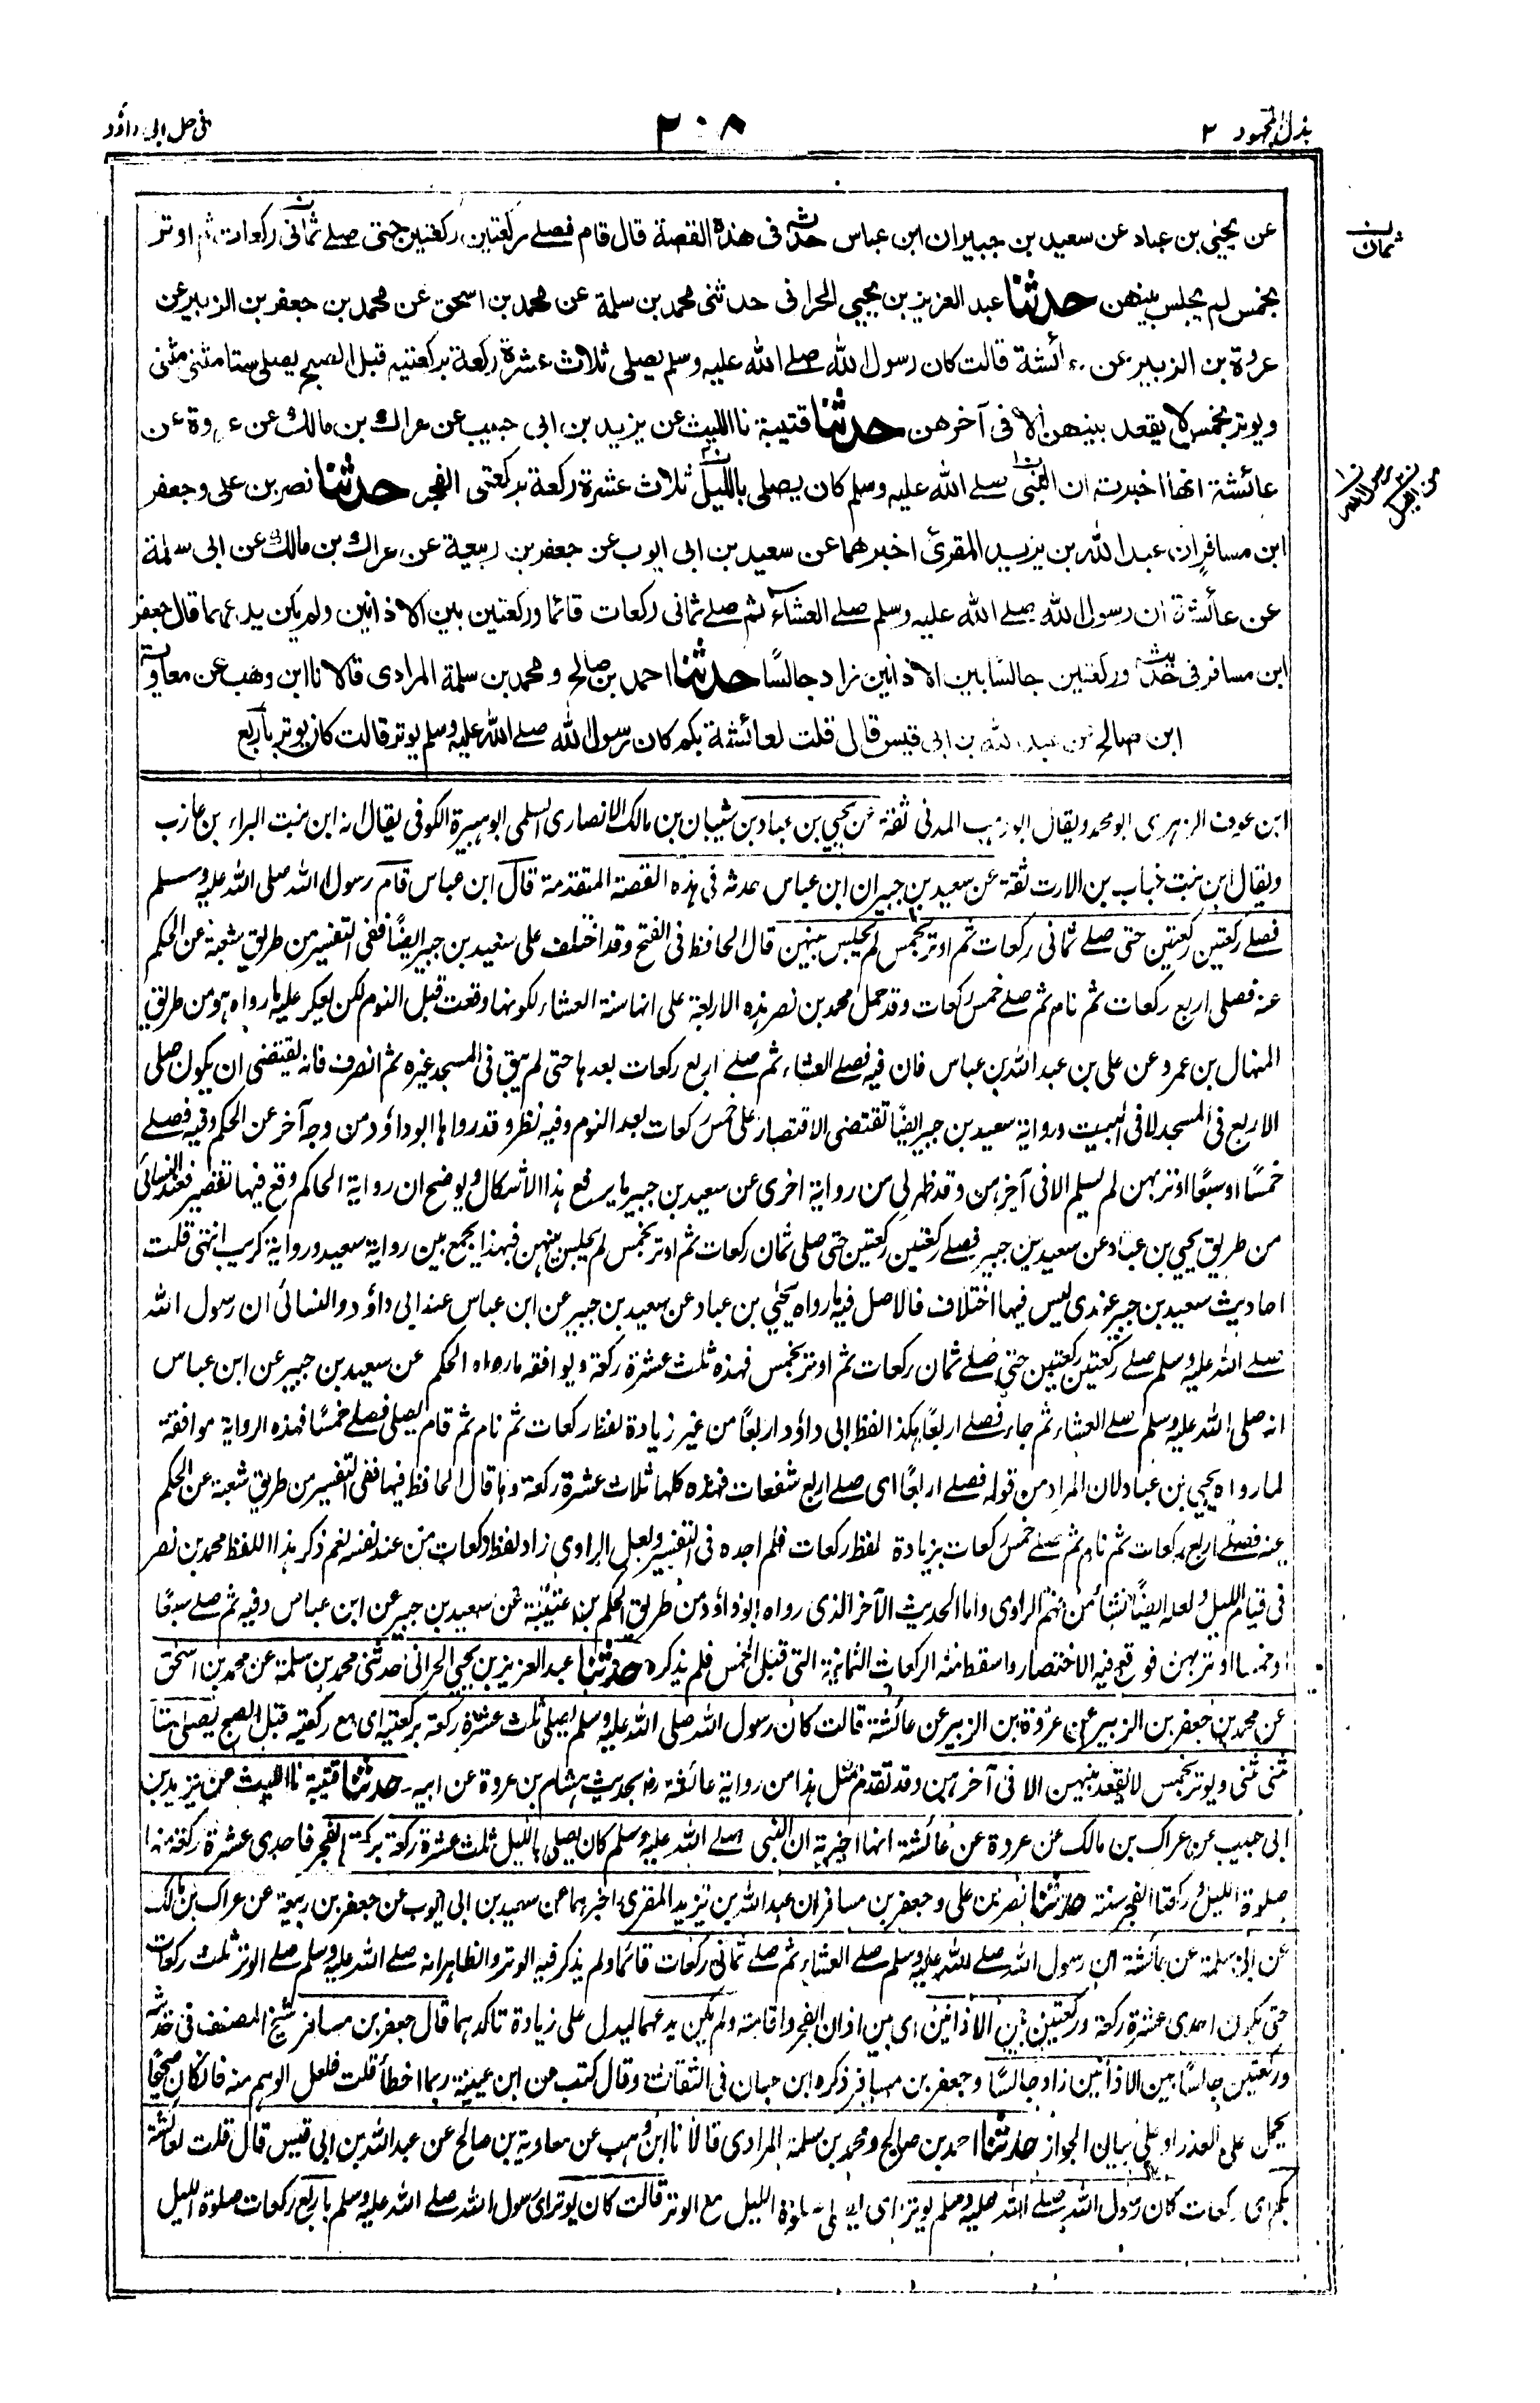 بذل المجهود ٢
٢٠٨
فى حل ابى داؤد
عن يحيى بن عباد عن سعيد بن جبير ان ابن عباس حدثه فى هذه القصة قال قام فصلے ركعتين ركعتين حتى صلے ثمانى ركعات ثم اوتر
ثمان
بخمس لم يجلس بينهن حدثنا عبد العزيز بن يحيى الحرانى حدثنى محمد بن سلمة عن محمد بن اسحق عن محمد بن جعفر بن الزبير عن
عروة بن الزبير عن عائشة قالت كان رسول الله صلے الله عليه وسلم يصلى ثلاث عشرة ركعة بركعتيه قبل الصبح يصلى ستا مثنى مثنى
ويوتر بخمس لا يقعد بينهن الا فى آخرهن حدثنا قتيبة نا الليث عن يزيد بن ابى حبيب عن عراك بن مالك عن عروة عن
عائشة انها اخبرته ان النبى صلے الله عليه وسلم كان يصلى بالليل ثلاث عشرة ركعة بركعتى الفجر حدثنا نصر بن على وجعفر
رسول الله
من الليل
ابن مسافر ان عبد الله بن يزيد المقرئ اخبرهما عن سعيد بن ابى ايوب عن جعفر بن ربيعة عن عراك بن مالك عن ابى سلمة
عن عائشة ان رسول الله صلے الله عليه وسلم صلے العشاء ثم صلے ثمانى ركعات قائما وركعتين بين الاذانين ولم يكن يدعهما قال جعفر
ابن مسافر فى حديثه وركعتين جالسا بين الاذانين زاد جالسًا حدثنا احمد بن صالح ومحمد بن سلمة المرادى قالا نا ابن وهب عن معاوية
ابن صالح عن عبد الله بن ابى قيس قال قلت لعائشة بكم كان رسول الله صلے الله عليه وسلم يوتر قالت كان يوتر باربع
ابن عوف الزهرى ابو محمد ويقال ابو المدنى ثقة عن يحيى بن عباد بن شيبان بن مالك الانصارى السلمى ابو هبيرة الكوفى يقال انه ابن بنت البراء بن عازب
ويقال ابن بنت خباب بن الارت ثقة عن سعيد بن جبير ان ابن عباس حدثه فى هذه القصة المتقدمة قال ابن عباس قام رسول الله صلى الله عليه وسلم
فصلے ركعتين ركعتين حتى صلے ثمانى ركعات ثم اوتر بخمس لم يجلس بينهن قال الحافظ فى الفتح وقد اختلف على سعيد بن جبير ايضًا ففى التفسير من طريق شعبة عن الحكم
عنه فصلى اربع ركعات ثم نام ثم صلے خمس ركعات وقد حمل محمد بن نصر هذه الاربعة على انها سنة العشاء لكونها وقعت قبل النوم لكن يعكر عليه ما رواه هو من طريق
المنهال بن عمرو عن على بن عبد الله بن عباس فان فيه فصلے العشاء ثم صلے اربع ركعات بعدها حتى لم يبق فى المسجد غيره ثم انصرف فانه يقتضى ان يكون صلى
الاربع فى المسجد لا فى البيت ورواية سعيد بن جبير ايضًا تقتضى الاقتصار على خمس ركعات بعد النوم وفيه نظر وقد رواها ابو داؤد من وجه آخر عن الحكم وفيه فصلے
خمسًا او سبعًا اوتر بهن لم يسلم الا فى آخرهن وقد ظهر لى من رواية اخرى عن سعيد بن جبير ما يرفع هذا الاشكال ويوضح ان رواية الحاكم وقع فيها تقصير فعند النسائى
من طريق يحيى بن عباد عن سعيد بن جبير فصلے ركعتين ركعتين حتى صلى ثمان ركعات ثم اوتر بخمس لم يجلس بينهن فبهذا يجمع بين رواية سعيد ورواية كريب انتهى قلت
احاديث سعيد بن جبير عندى ليس فيها اختلاف فالاصل فيه ما رواه يحيى بن عباد عن سعيد بن جبير عن ابن عباس عند ابى داؤد والنسائى ان رسول الله
صلے الله عليه وسلم صلے ركعتين ركعتين حتى صلے ثمان ركعات ثم اوتر بخمس فهذه ثلث عشرة ركعة ويوافقه ما رواه الحكم عن سعيد بن جبير عن ابن عباس
انه صلى الله عليه وسلم صلے العشاء ثم جاء فصلے اربعًا هكذا لفظ ابى داؤد اربعًا من غير زيادة لفظ ركعات ثم نام ثم قام يصلى فصلے خمسًا فهذه الرواية موافقة
لما رواه يحيى بن عباد لان المراد من قوله فصلے اربعًا اى صلے اربع شفعات فهذه كلها ثلاث عشرة ركعة وما قال الحافظ فيها ففى التفسير من طريق شعبة عن الحكم
عنه فصلے اربع ركعات ثم نام ثم صلے خمس ركعات بزيادة لفظ ركعات فلم اجده فى التفسير ولعل الراوى زاد لفظ ركعات من عند نفسه نعم ذكر هذا اللفظ محمد بن نصر
فى قيام الليل ولعله ايضًا نشأ من فهم الراوى واما الحديث الآخر الذى رواه ابو داؤد من طريق الحكم بن عتيبة عن سعيد بن جبير عن ابن عباس وفيه ثم صلے سبعًا
او خمسا اوتر بهن فوقع فيه الاختصار واسقط منه الركعات الثمانية التى قبل الخمس فلم يذكره حدثنا عبد العزيز بن يحيى الحرانى حدثنى محمد بن سلمة عن محمد بن اسحق
عن محمد بن جعفر بن الزبير عن عروة ابن الزبير عن عائشة قالت كان رسول الله صلى الله عليه وسلم يصلى ثلث عشرة ركعة بركعتيه اى مع ركعتيه قبل الصبح يصلى ستا
مثنى مثنى ويوتر بخمس لا يقعد بينهن الا فى آخرهن وقد تقدم مثل هذا من رواية عائشة رضـ بحديث هشام بن عروة عن ابيه ـ حدثنا قتيبة نا الليث عن يزيد بن
ابى حبيب عن عراك بن مالك عن عروة عن عائشة انها اخبرته ان النبى صلے الله عليه وسلم كان يصلى بالليل ثلث عشرة ركعة بركعتى الفجر فاحدى عشرة ركعة منها
صلوة الليل وركعتا الفجر سنة حدثنا نصر بن على وجعفر بن مسافر ان عبد الله بن يزيد المقرئ اخبرهما عن سعيد بن ابى ايوب عن جعفر بن ربيعة عن عراك بن مالك
عن ابى سلمة عن عائشة ان رسول الله صلے الله عليه وسلم صلے العشاء ثم صلے ثمانى ركعات قائما ولم يذكر فيه الوتر والظاهر انه صلے الله عليه وسلم صلے الوتر ثلث ركعات
حتى يكون احدى عشرة ركعة وركعتين بين الاذانين اى بين اذان الفجر واقامته ولم يكن يدعهما ليدل على زيادة تاكدهما قال جعفر بن مسافر شيخ المصنف فى حديثه
وركعتين جالسًا بين الاذانين زاد جالسًا وجعفر بن مسافر ذكره ابن حبان فى الثقات وقال كتب عن ابن عيينة ربما اخطأ قلت فلعل الوهم منه فان كان صحيحًا
يحمل على العذر او على بيان الجواز حدثنا احمد بن صالح ومحمد بن سلمة المرادى قالا نا ابن وهب عن معاوية بن صالح عن عبد الله بن ابى قيس قال قلت لعائشة
بكم اى ركعات كان رسول الله صلے الله عليه وسلم يوتر اى صلوة الليل مع الوتر قالت كان يوتر اى رسول الله صلے الله عليه وسلم باربع ركعات صلوة الليل